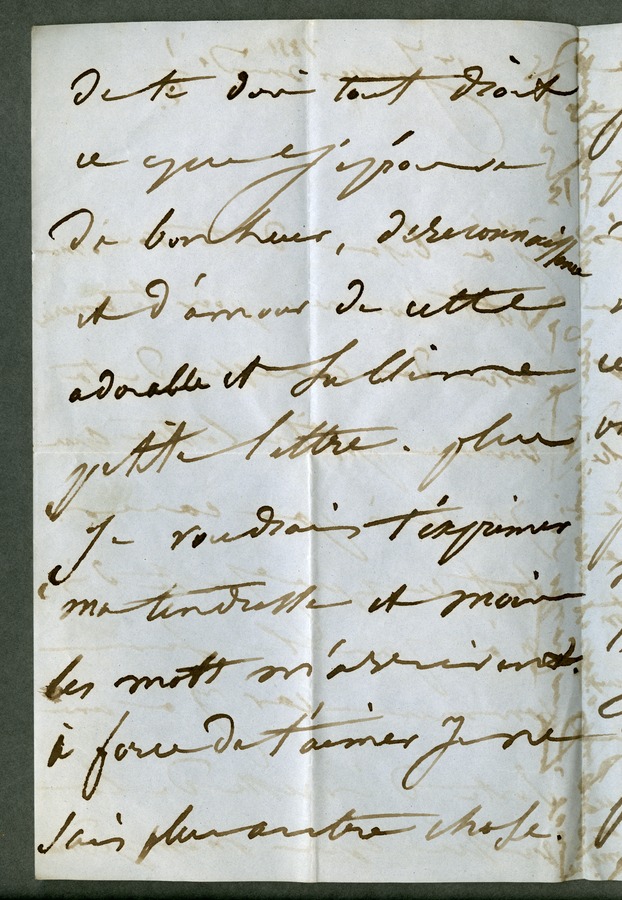 de te dire tout droit
ce que j'éprouve
de bonheur, de reconnaissance
et d'amour de cette
adorable et sublime
petite lettre. plus
je voudrais t'exprimer
ma tendresse et moins
les mots m'arrivent.
à force de t'aimer je ne
sais plus autre chose.